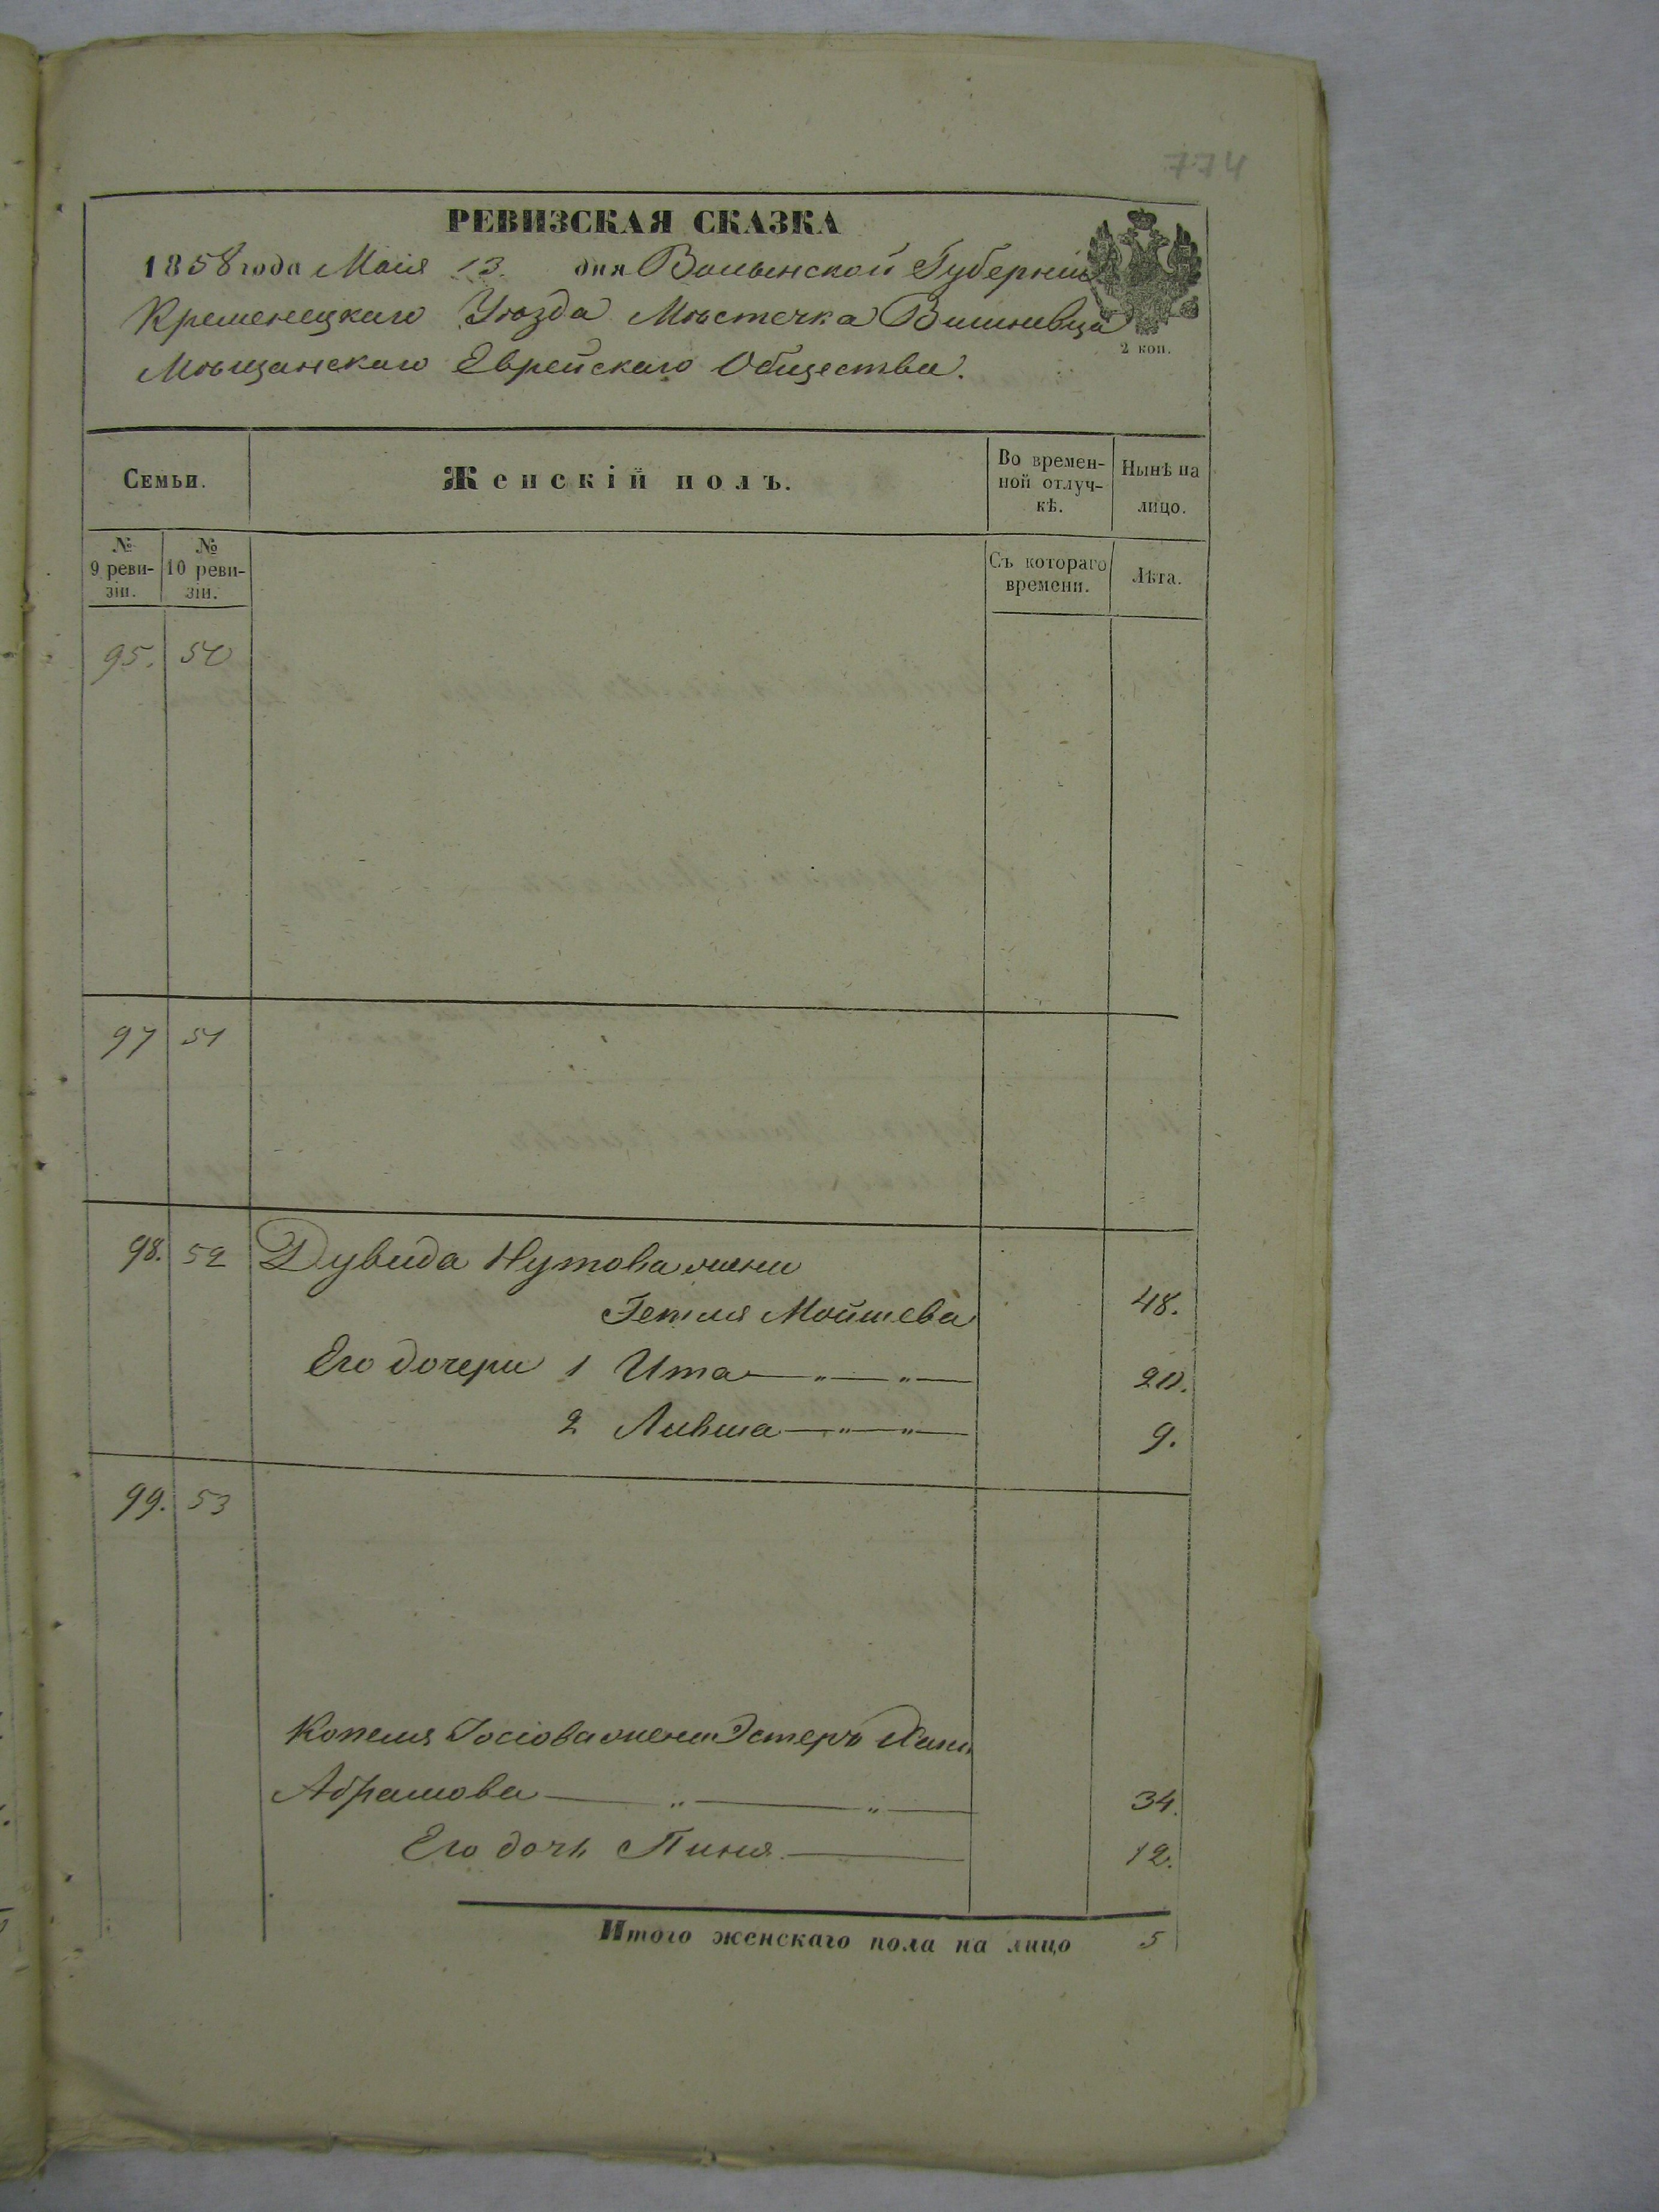 774
РЕВИЗСКАЯ СКАЗКА
1858 года Маія 13. дня Волынской Губерніи
Кременецкаго Уѣзда Мѣстечка Вишневца
Мѣщанскаго Еврейскаго Общества.
2 коп.
Семьи. Женскій полъ. Во времен- Нынѣ на
ной отлуч-
кѣ. лицо.
№ №
9 реви- 10 реви- Съ котораго Лѣта.
зіи. зіи. времени.
95. 50
97 51
98. 52 Дувида Нутова жена
Гетля Мойшева 48.
Его дочери 1 Ита — „ — „ — 20.
2 Ливша — „ — „ — 9.
99. 53
Копеля Іосіова жена Эстеръ Хана
Абрамова — „ — „ — 34.
Его дочь Пиня — 12.
Итого женскаго пола на лицо 5